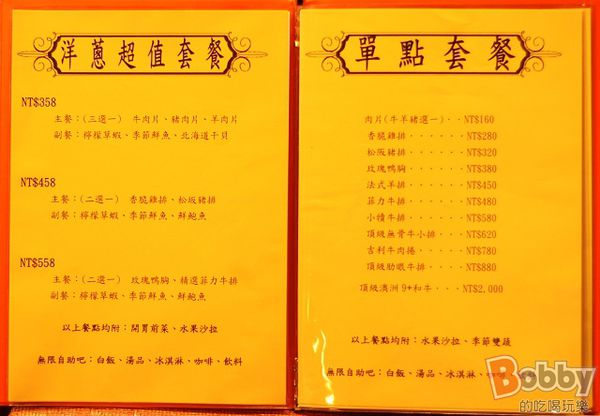 洋蔥超值套餐
NT$358
主餐:(三選一) 牛肉片、豬肉片、羊肉片
副餐:檸檬草蝦、季節鮮魚、北海道干貝
NT$458
主餐:(二選一) 香脆雞排、松坂豬排
副餐:檸檬草蝦、季節鮮魚、鮮鮑魚
NT$558
主餐:(二選一) 玫瑰鴨胸、精選菲力牛排
副餐:檸檬草蝦、季節鮮魚、鮮鮑魚
以上餐點均附:開胃前菜、水果沙拉
無限自助吧:白飯、湯品、冰淇淋、咖啡、飲料
單點套餐
肉片(牛羊豬選一)··NT$160
香脆雞排······NT$280
松阪豬排······NT$320
玫瑰鴨胸······NT$380
法式羊排······NT$450
菲力牛排······NT$480
小犢牛排······NT$580
頂級無骨牛小排···NT$620
吉利牛肉捲·····NT$780
頂級肋眼牛排····NT$880
頂級澳洲 9+和牛···NT$2,000
以上餐點均附:水果沙拉、季節雙蔬
無限自助吧:白飯、湯品、冰淇淋、咖啡、飲料
Bobby
的吃喝玩樂